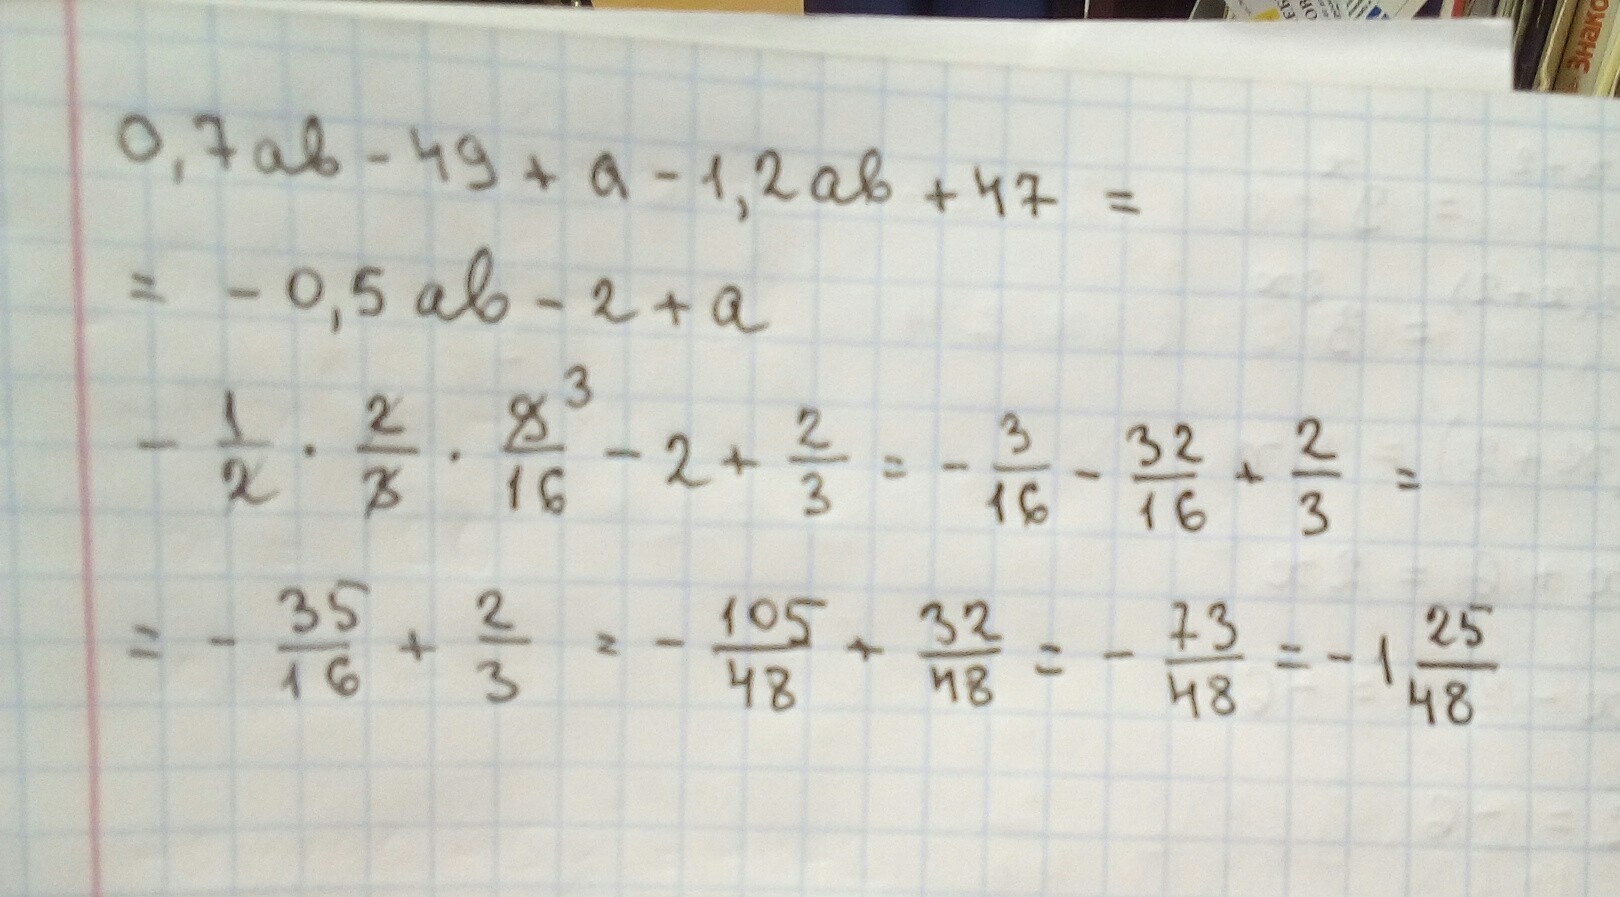 Знако
0,7ab - 49 + a - 1,2ab + 47 =
= - 0,5ab - 2 + a
- 1/2 · 2/3 · 9³/16 - 2 + 2/3 = - 3/16 - 32/16 + 2/3 =
= - 35/16 + 2/3 = - 105/48 + 32/48 = - 73/48 = - 1 25/48